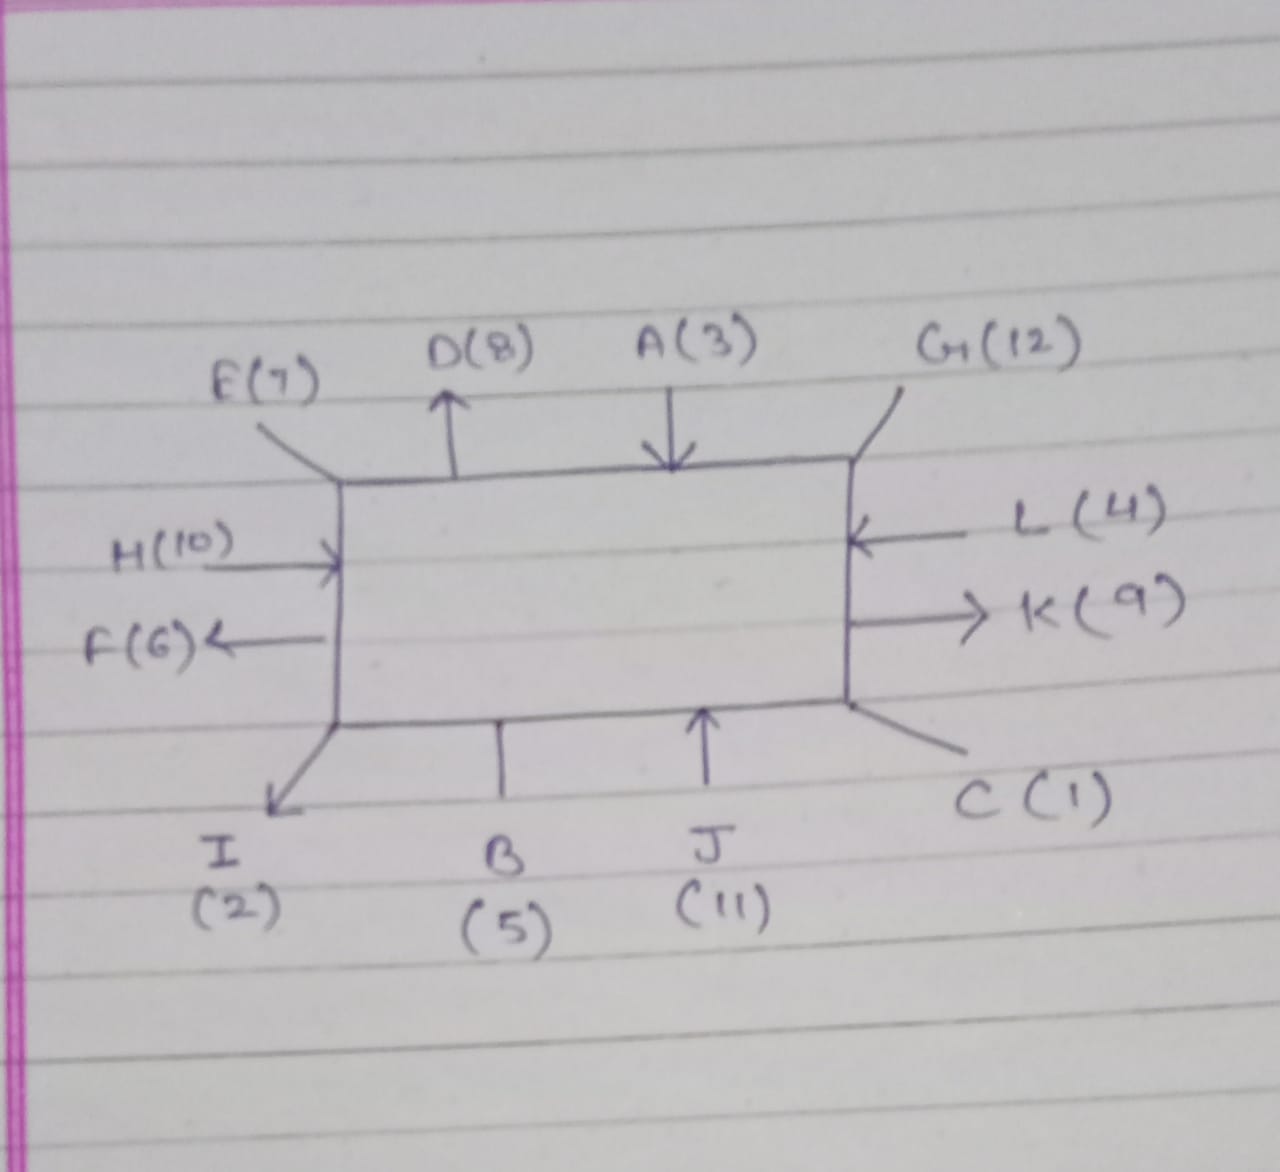 E(7) D(8) A(3) G(12)
H(10) L(4)
F(6) K(9)
I B J C(1)
(2) (5) (11)